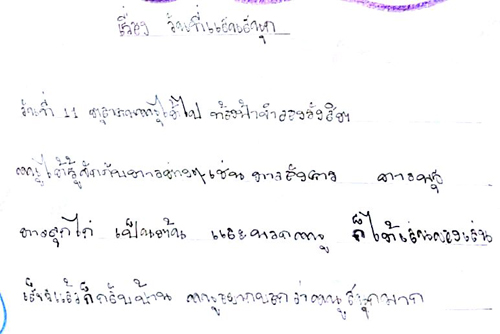 เรื่อง วันที่แสนสนุก
วันที่ 11 ตุลาคมหนูได้ไป ท้องฟ้าจำลองรังสิต
หนูได้รู้จักกับดาวต่างๆเช่น ดาวอังคาร ดาว
ดาวลูกไก่ เป็นต้น และพวกหนู ก็ได้เล่นของเล่น
เสร็จแล้วก็กลับบ้าน หนูอยากบอกว่าหนูสนุกมาก